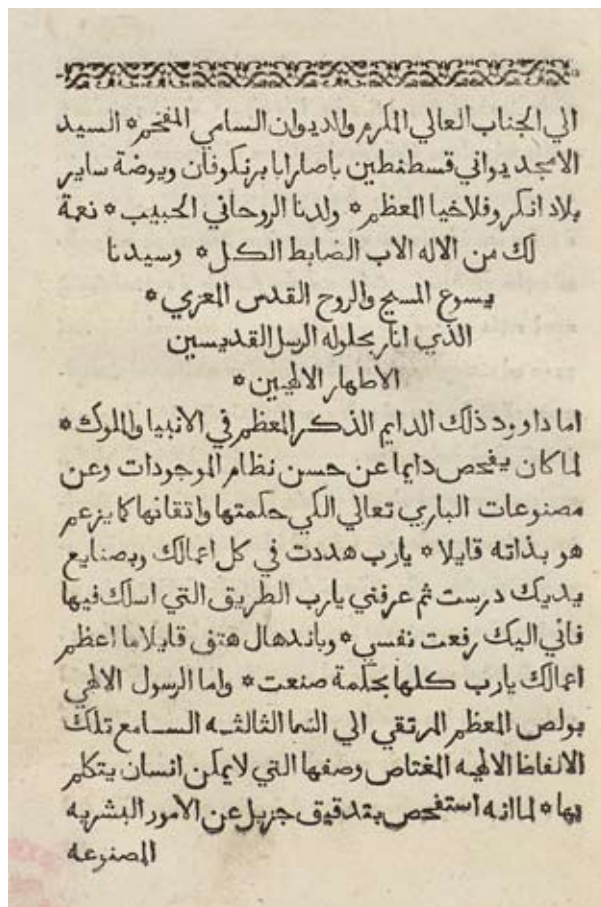 الي الجناب العالي المكرم والديوان السامي المفخم * السيد
الامجد يواني قسطنطين باصارابا برنكوفان ويوضة ساير
بلاد انكروفلاخيا المعظم * ولدنا الروحاني الحبيب * نعمة
لك من الاله الاب الضابط الكل * وسيدنا
يسوع المسيح والروح القدس المعزي *
الذي انار بحلوله الرسل القديسين
الاطهار الالهيين *
اما داوود ذلك الدايم الذكر المعظم في الانبيا والملوك *
لما كان يفحص دايما عن حسن نظام الموجودات وعن
مصنوعات الباري تعالي الكلي حكمتها واتقانها كما يزعم
هو بذاته قايلا * يارب هددت في كل اعمالك وبصنايع
يديك درست ثم عرفني يارب الطريق التي اسلك فيها
فاني اليك رفعت نفسي * وباندهال هتف قايلا ما اعظم
اعمالك يارب كلها بحكمة صنعت * واما الرسول الالهي
بولص المعظم المرتقي الي السما الثالثه السامع تلك
الالفاظ الالهيه المغتاص وصفها التي لايمكن انسان يتكلم
بها * لما انه استفحص بتدقيق جزيل عن الامور البشريه
المصنوعه